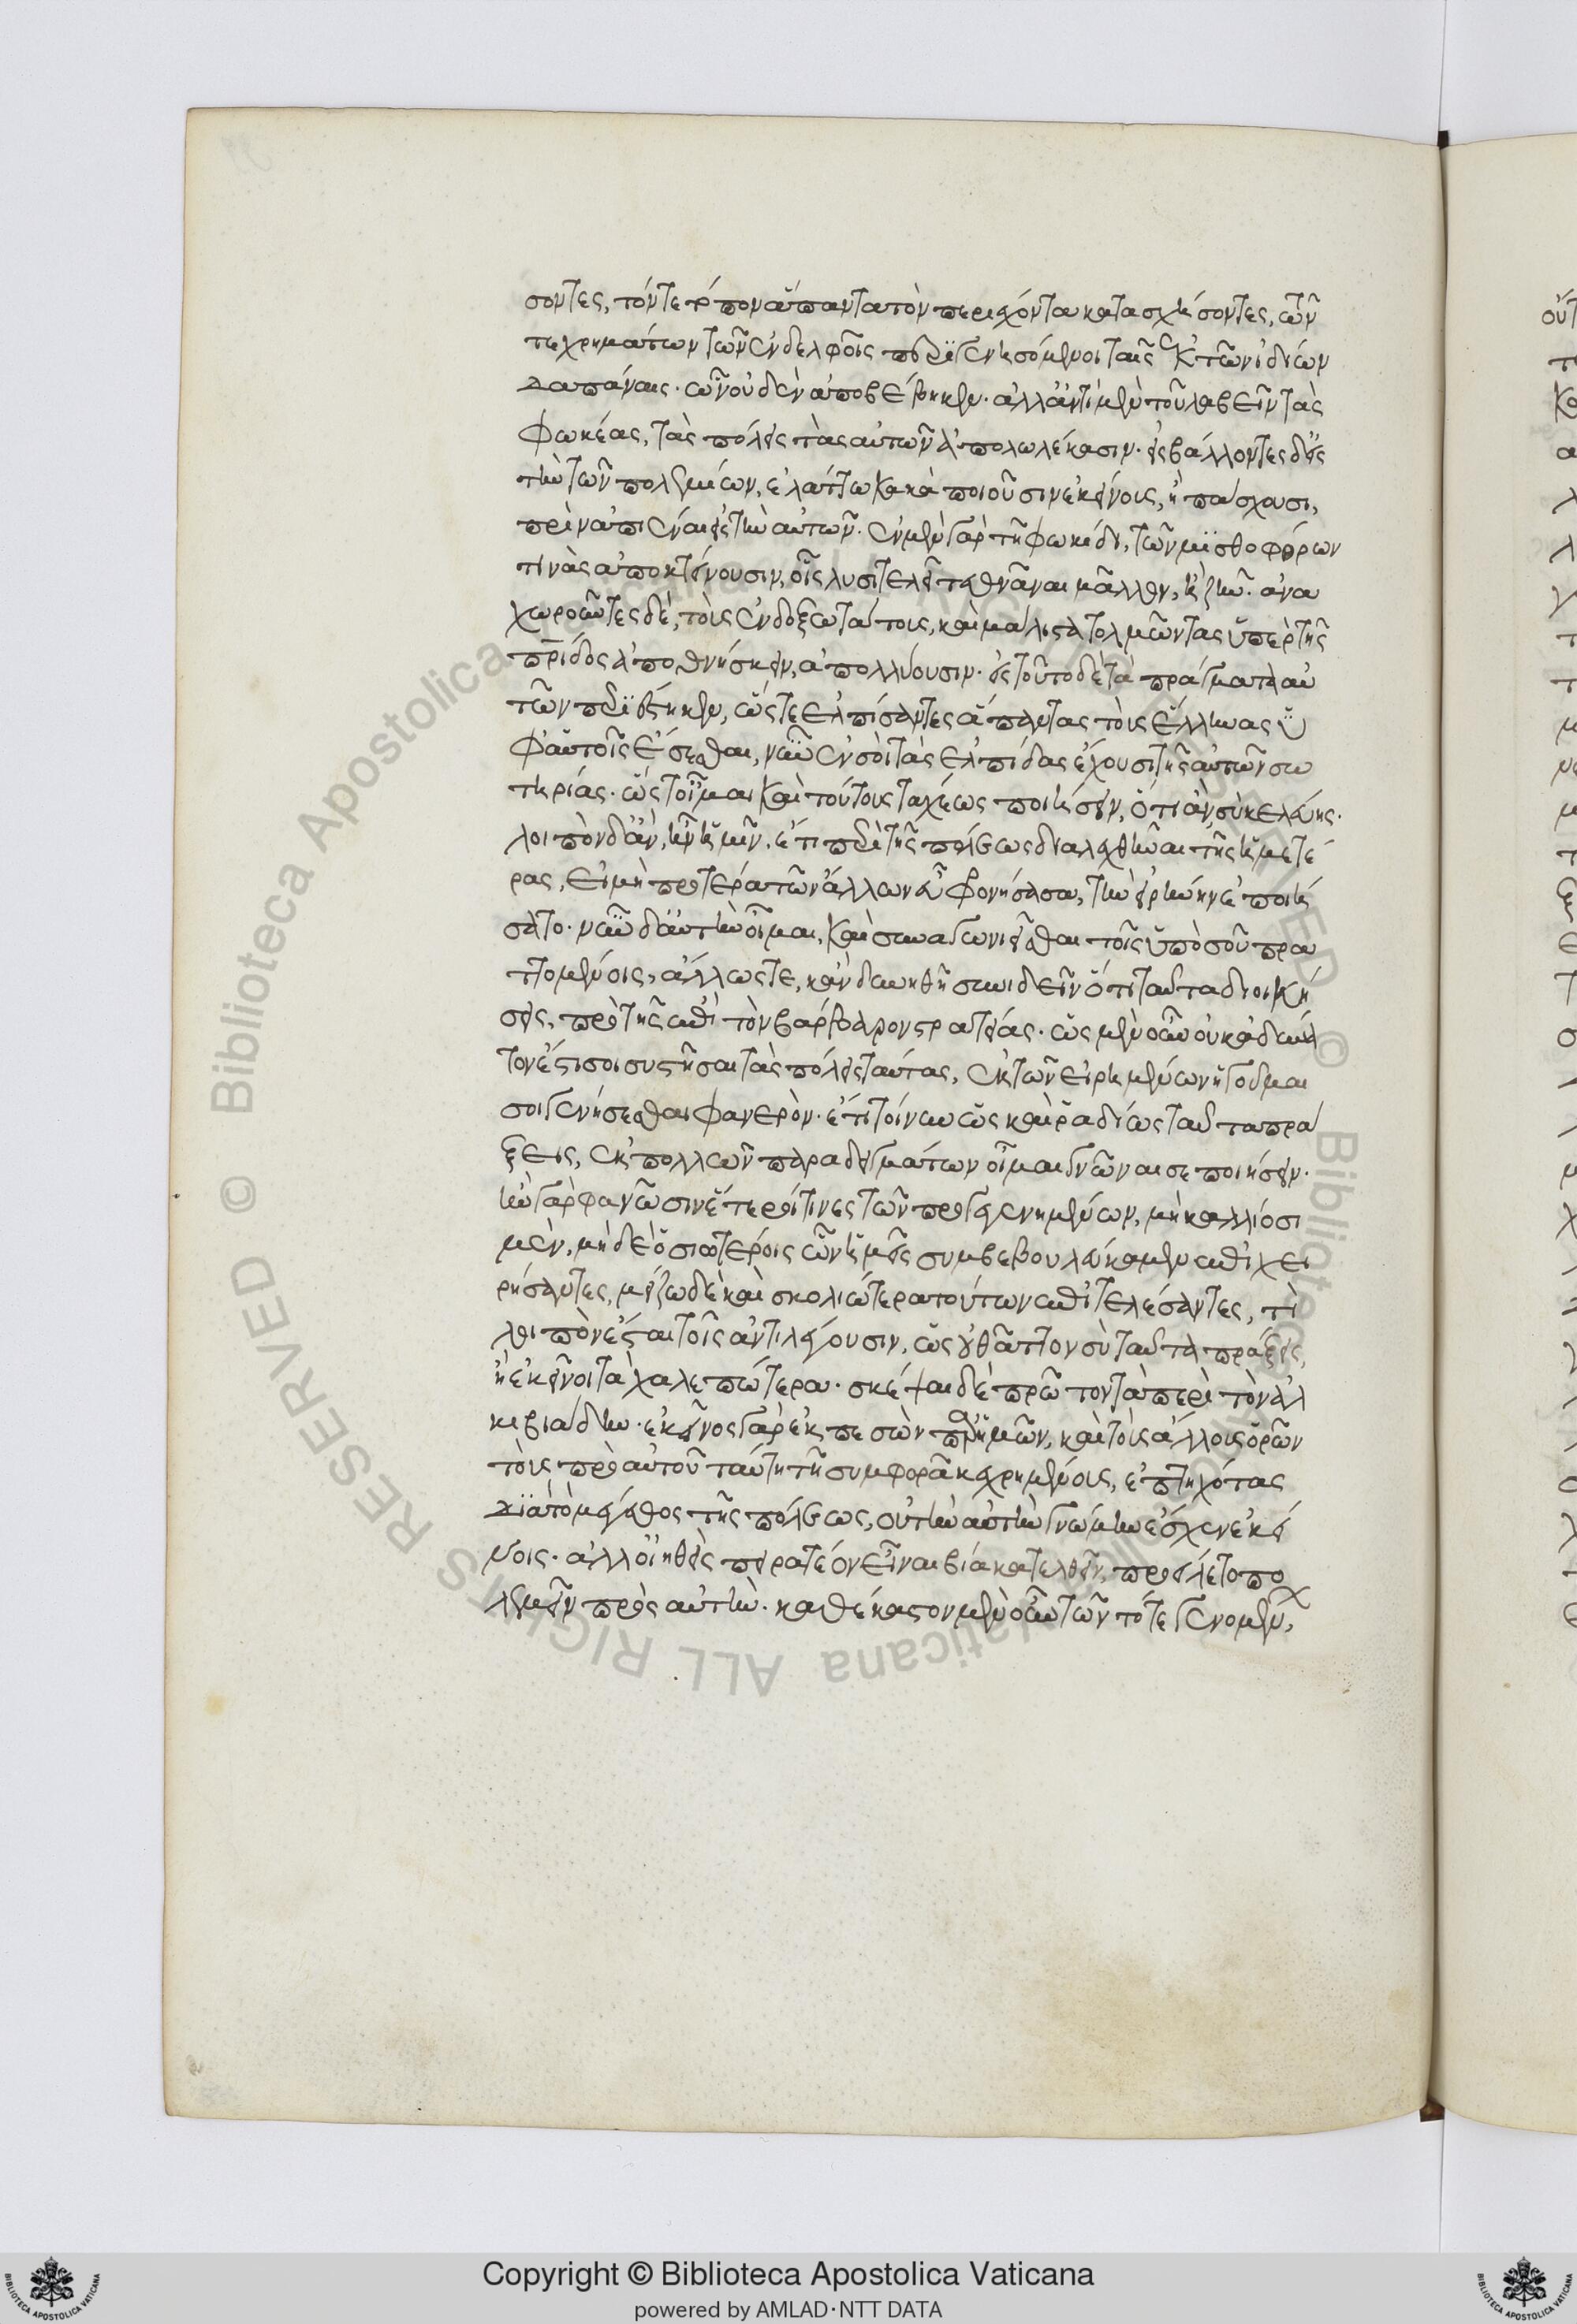 σοντες, τόν τε τόπον ἅπαντα τὸν περιέχοντα κατασχήσοντες, τῶν
τε χρημάτων τῶν ἐν δελφοῖς περιγενησόμενοι ταῖς ἐκ τῶν ἰδίων
δαπάναις· ὧν οὐδὲν ἀποβέβηκεν· ἀλλ' ἀντὶ μὲν τοῦ λαβεῖν τὰς
φωκέας, τὰς πόλεις τὰς αὐτῶν ἀπολωλέκασιν· εἰσβάλλοντες δ' εἰς
τὴν τῶν πολεμίων, ἐλάττω κακὰ ποιοῦσιν ἐκείνους, ἢ πάσχουσι,
πρὶν ἀπιέναι εἰς τὴν αὐτῶν. ἐν μὲν γὰρ τῇ φωκίδι, τῶν μισθοφόρων
τινὰς ἀποκτείνουσιν, οἷς λυσιτελεῖ τεθνᾶναι μᾶλλον, ἢ ζῆν. ἀνα
χωροῦντες δὲ, τοὺς ἐνδοξωτάτους, καὶ μάλιστα τολμῶντας ὑπὲρ τῆς
πρίδος ἀποθνήσκειν, ἀπολλύουσιν· εἰς τοῦτο δὲ τὰ πράγματα αὐ
τῶν περιέστηκεν, ὥστε ἐλπίσαντες ἅπαντας τοὺς ἕλληνας ὑ
φ' αὑτοῖς ἔσεσθαι, νῦν ἐν σοὶ τὰς ἐλπίδας ἔχουσι τῆς αὐτῶν σω
τηρίας· ὥστ' οἶμαι καὶ τούτους ταχέως ποιήσειν, ὅτι ἂν σὺ κελεύῃς·
λοιπὸν δ' ἂν, ἦν ἡμῖν, ἔτι περὶ τῆς πόλεως διαλεχθῆναι τῆς ἡμετέ
ρας, εἰ μὴ προτέρα τῶν ἄλλων εὖ φρονήσασα, τὴν εἰρήνην ἐποιή
σατο· νῦν δ' αὐτὴν οἶμαι, καὶ συναγωνιεῖσθαι τοῖς ὑπὸ σοῦ πρα
ττομένοις, ἄλλως τε, κἂν δυνηθῇ συνιδεῖν ὅτι ταῦτα διοική
σεις, πρὸ τῆς ἐπὶ τὸν βάρβαρον στρατείας· ὡς μὲν οὖν οὐκ ἀδύνα
τον ἐστί σοι συστῆσαι τὰς πόλεις ταύτας, ἐκ τῶν εἰρημένων ἡγοῦμαι
σοι γενήσεσθαι φανερὸν· ἔτι τοίνυν ὡς καὶ ῥαδίως ταῦτα πρά
ξεις, ἐκ πολλῶν παραδειγμάτων οἶμαι γνῶναι σε ποιήσειν·
ἢν γὰρ φανῶσιν ἕτεροί τινες τῶν προγεγενημένων, μὴ καλλίοσι
μὲν, μηδὲ ὁσιωτέροις ὧν ἡμεῖς συμβεβουλεύκαμεν ἐπιχει
ρήσαντες, μείζω δὲ καὶ σκολιώτερα τούτων ἐπιτελέσαντες, τὶ
λοιπὸν ἔσται τοῖς ἀντιλέγουσιν, ὡς οὐ θᾶττον σὺ ταῦτα πράξεις,
ἢ ἐκεῖνοι τὰ χαλεπώτερα· σκέψαι δὲ πρῶτον τὰ περὶ τὸν ἀλ
κιβιάδην· ἐκεῖνος γὰρ ἐκπεσὼν παρ' ἡμῶν, καὶ τοὺς ἄλλους ὁρῶν
τοὺς πρὸ αὐτοῦ ταύτῃ τῇ συμφορᾷ κεχρημένους, ἐπτηχότας
διὰ τὸ μέγεθος τῆς πόλεως, οὐ τὴν αὐτὴν γνώμην ἔσχεν ἐκεί
νοις· ἀλλ' οἰηθεὶς πειρατέον εἶναι βίᾳ κατελθεῖν, προείλετο πο
λεμεῖν πρὸς αὐτὴν· καθ' ἕκαστον μὲν οὖν τῶν τότε γενομέν,